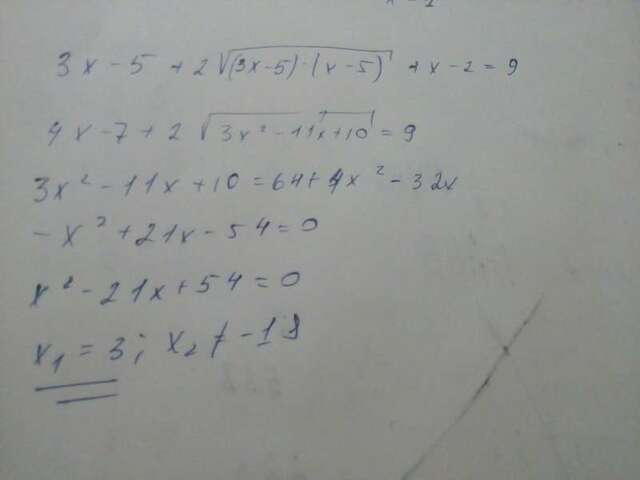 3x-5+2√((3x-5)·(x-5))+x-2=9
4x-7+2√(3x²-11x+10)=9
3x²-11x+10=64+4x²-32x
-x²+21x-54=0
x²-21x+54=0
x₁=3; x₂≠-18